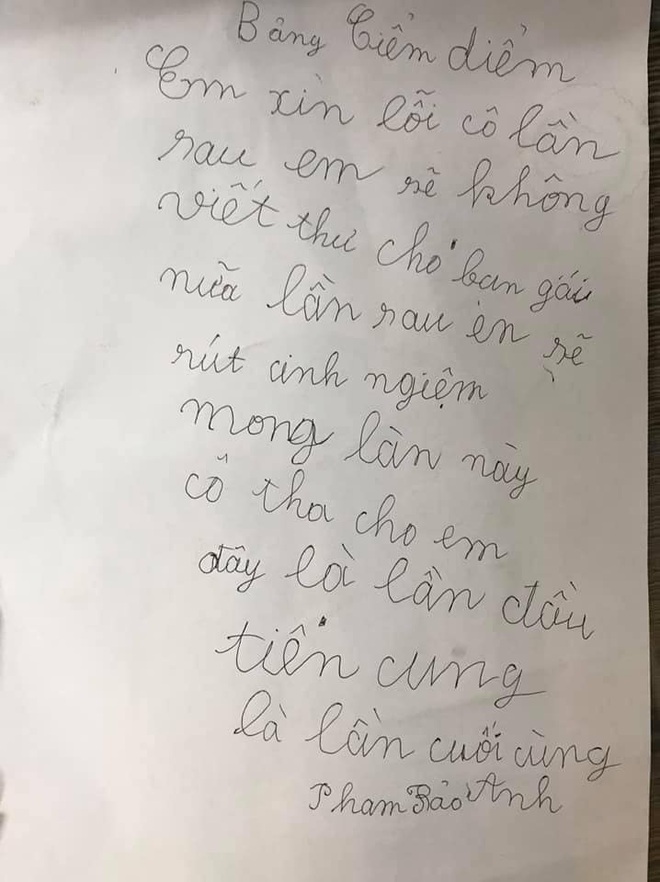 Bảng Ciểm điểm
Em xin lỗi cô lần
rau em sẽ không
viết thư cho bạn gái
nữa lần rau en sẽ
rút cinh ngiệm
mong lần này
cô tha cho em
đây là lần đầu
tiên cung
là lần cuối cùng
Phạm Bảo Anh